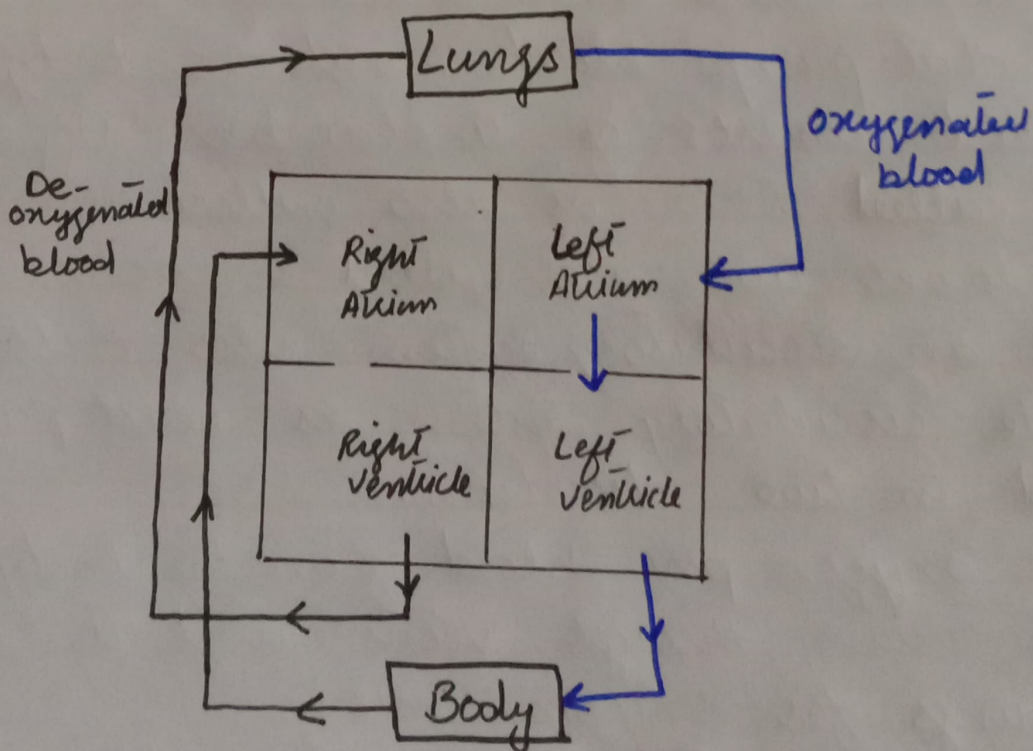 Lungs
oxygenated
blood
De-
oxygenated
blood
Right
Atrium
Left
Atrium
Right
ventricle
Left
ventricle
Body